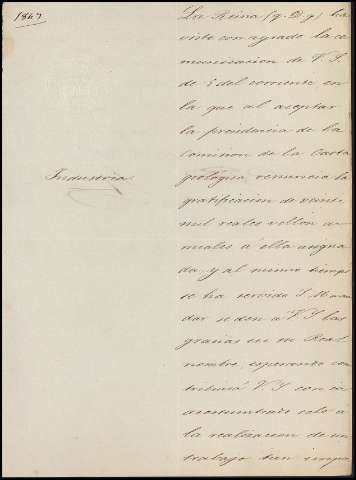 1867
Industria
La Reina (q. D. g.) ha
visto con agrado la co
municacion de V. S.
de 5 del corriente en
la que al aceptar
la presidencia de la
Comision de la Carta
geologica, renuncia la
gratificacion de veinte
mil reales vellon a-
nuales á ella asigna
da, y al mismo tiempo
se ha servido S. M. man
dar se den á V. S. las
gracias en su Real
nombre, esperando con
tribuirá V. S. con su
acostumbrado celo á
la realizacion de un
trabajo tan impo